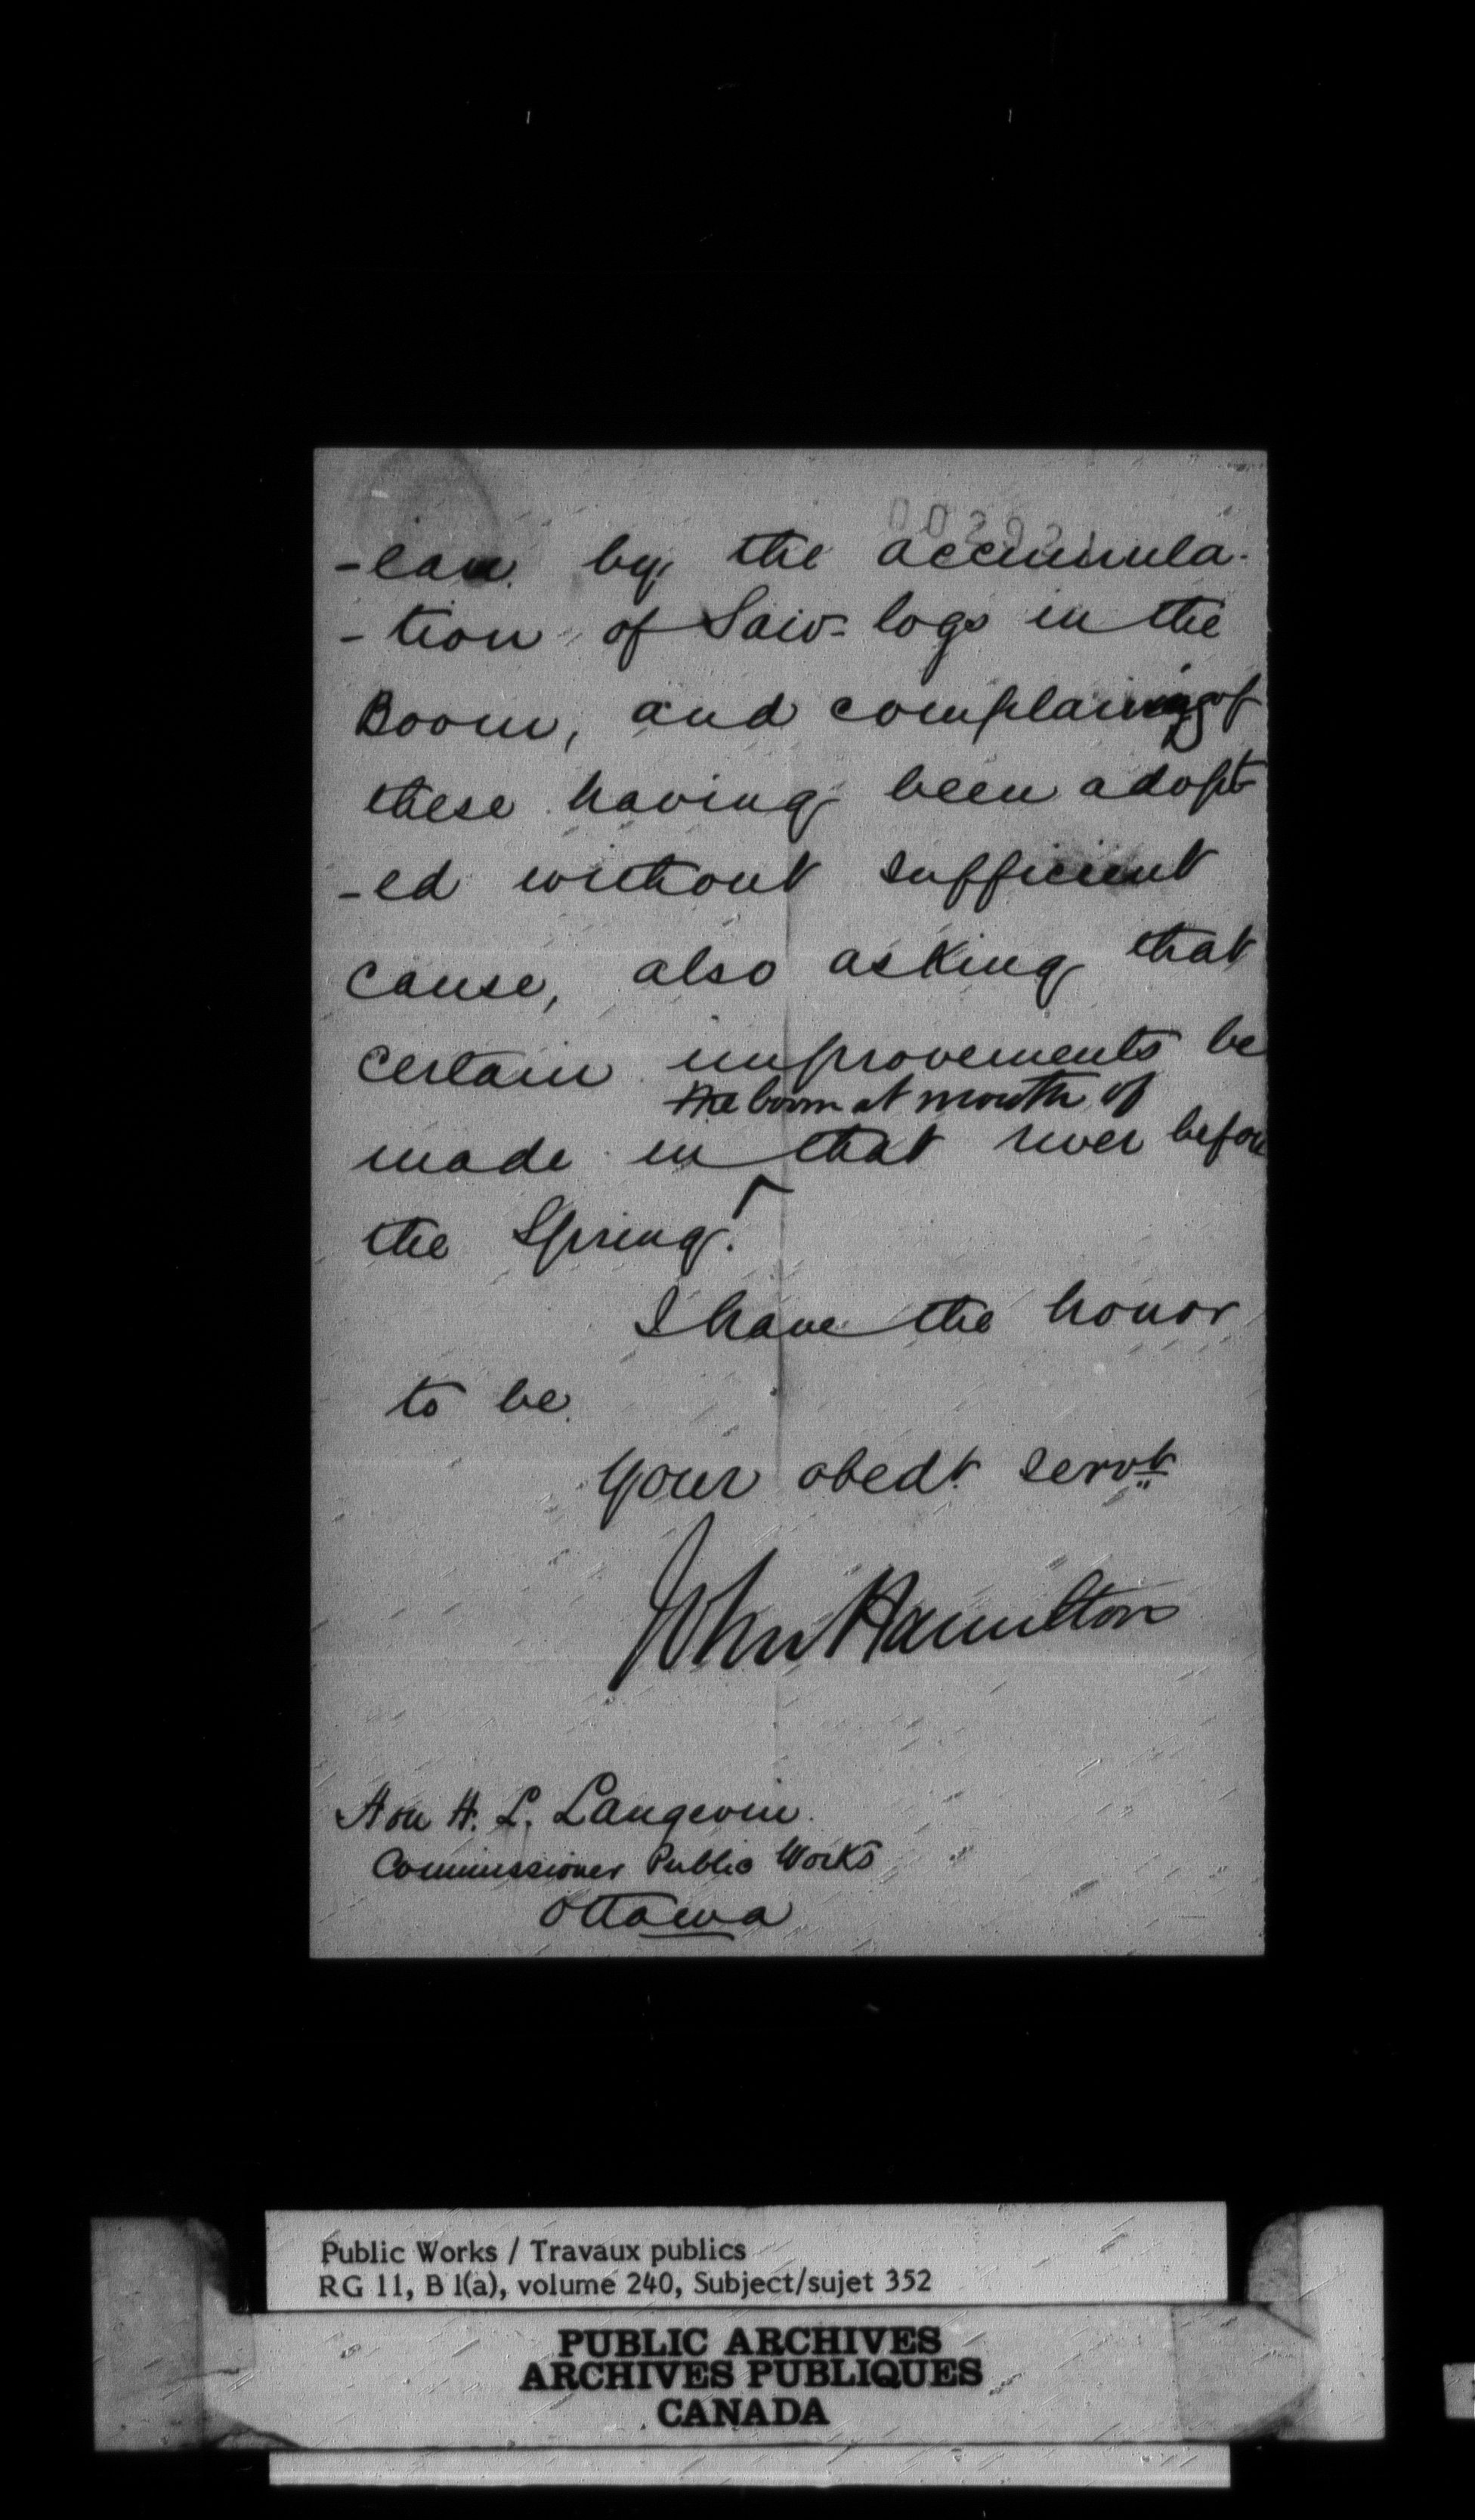 -eau by the accumula-
-tion of Saw-logs in the
Boom, and complaining of
these having been adopt
-ed without sufficient
cause, also asking that
certain improvements be
the boom at mouth of
made in that river before
the Spring.
I have the honor
to be
Your obedt. servt
John Hamilton
Hon H. L. Langevin
Commissioner Public Works
Ottawa
Public Works / Travaux publics
RG 11, B 1(a), volume 240, Subject/sujet 352
PUBLIC ARCHIVES
ARCHIVES PUBLIQUES
CANADA